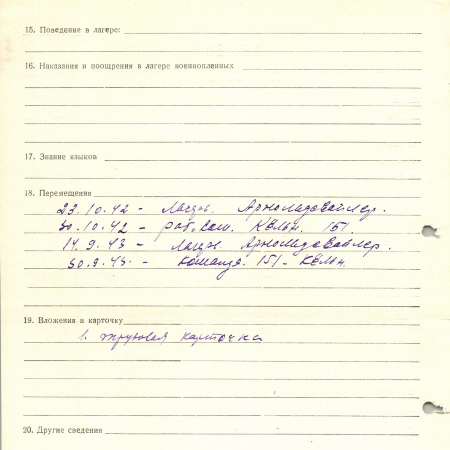 15. Поведение в лагере:
16. Наказания и поощрения в лагере военнопленных
17. Знание языков
18. Перемещения
23.10.42 - лагерь Арнольдсвайлер.
30.10.42 - раб. ком. Кёльн 151.
14.9.43 - лагерь Арнольдсвайлер.
30.9.43. - команда 151 - Кёльн.
19. Вложения в карточку
1. трудовая карточка
20. Другие сведения